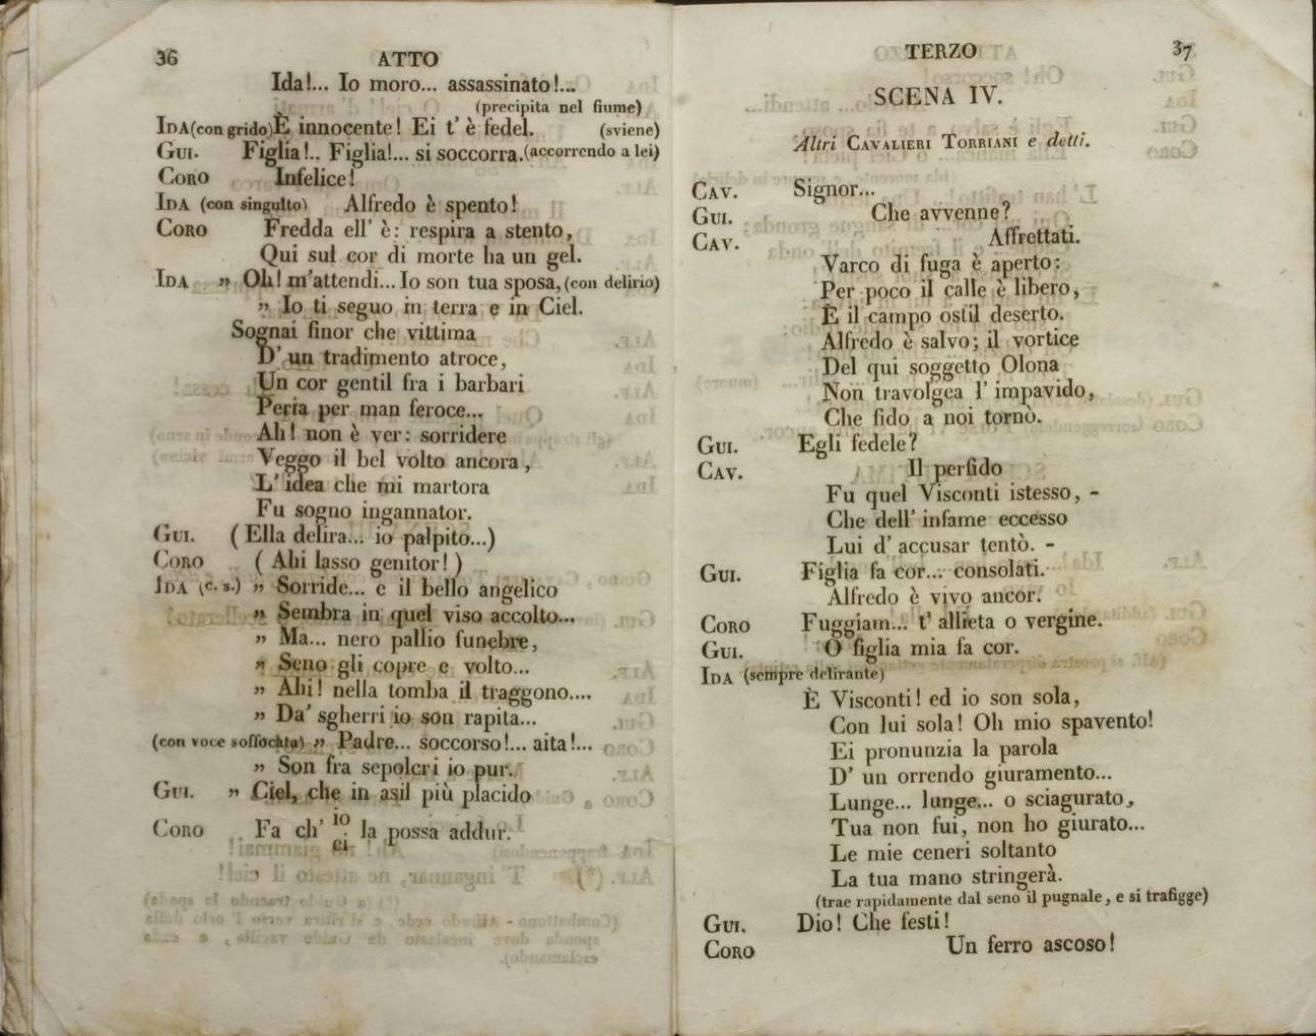 36
ATTO
Ida!... Io moro... assassinato!...
(precipita nel fiume)
IDA (con grido) È innocente! Ei t' è fedel. (sviene)
GUI. Figlia!.. Figlia!... si soccorra. (accorrendo a lei)
CORO Infelice!
IDA (con singulto) Alfredo è spento!
CORO Fredda ell' è: respira a stento,
Qui sul cor di morte ha un gel.
IDA „ Oh! m'attendi... Io son tua sposa, (con delirio)
„ Io ti seguo in terra e in Ciel.
Sognai finor che vittima
D' un tradimento atroce,
Un cor gentil fra i barbari
Peria per man feroce...
Ah! non è ver: sorridere
Veggo il bel volto ancora,
L' idea che mi martora
Fu sogno ingannator.
GUI. (Ella delira... io palpito...)
CORO (Ahi lasso genitor!)
IDA (c. s.) „ Sorride... e il bello angelico
„ Sembra in quel viso accolto...
„ Ma... nero pallio funebre,
„ Seno gli copre e volto...
„ Ahi! nella tomba il traggono....
„ Da' sgherri io son rapita...
(con voce soffocata) „ Padre... soccorso!... aita!...
„ Son fra sepolcri io pur.
GUI. „ Ciel, che in asil più placido
CORO Fa ch' io la possa addur.
ei
TERZO
37
SCENA IV.
Altri CAVALIERI TORRIANI e detti.
CAV. Signor...
GUI. Che avvenne?
CAV. Affrettati.
Varco di fuga è aperto:
Per poco il calle è libero,
È il campo ostil deserto.
Alfredo è salvo; il vortice
Del qui soggetto Olona
Non travolgea l' impavido,
Che fido a noi tornò.
GUI. Egli fedele?
CAV. Il perfido
Fu quel Visconti istesso, -
Che dell' infame eccesso
Lui d' accusar tentò. -
GUI. Figlia fa cor... consolati.
Alfredo è vivo ancor.
CORO Fuggiam... t' allieta o vergine.
GUI. O figlia mia fa cor.
IDA (sempre delirante)
È Visconti! ed io son sola,
Con lui sola! Oh mio spavento!
Ei pronunzia la parola
D' un orrendo giuramento...
Lunge... lunge... o sciagurato,
Tua non fui, non ho giurato...
Le mie ceneri soltanto
La tua mano stringerà.
(trae rapidamente dal seno il pugnale, e si trafigge)
GUI. Dio! Che festi!
CORO Un ferro ascoso!